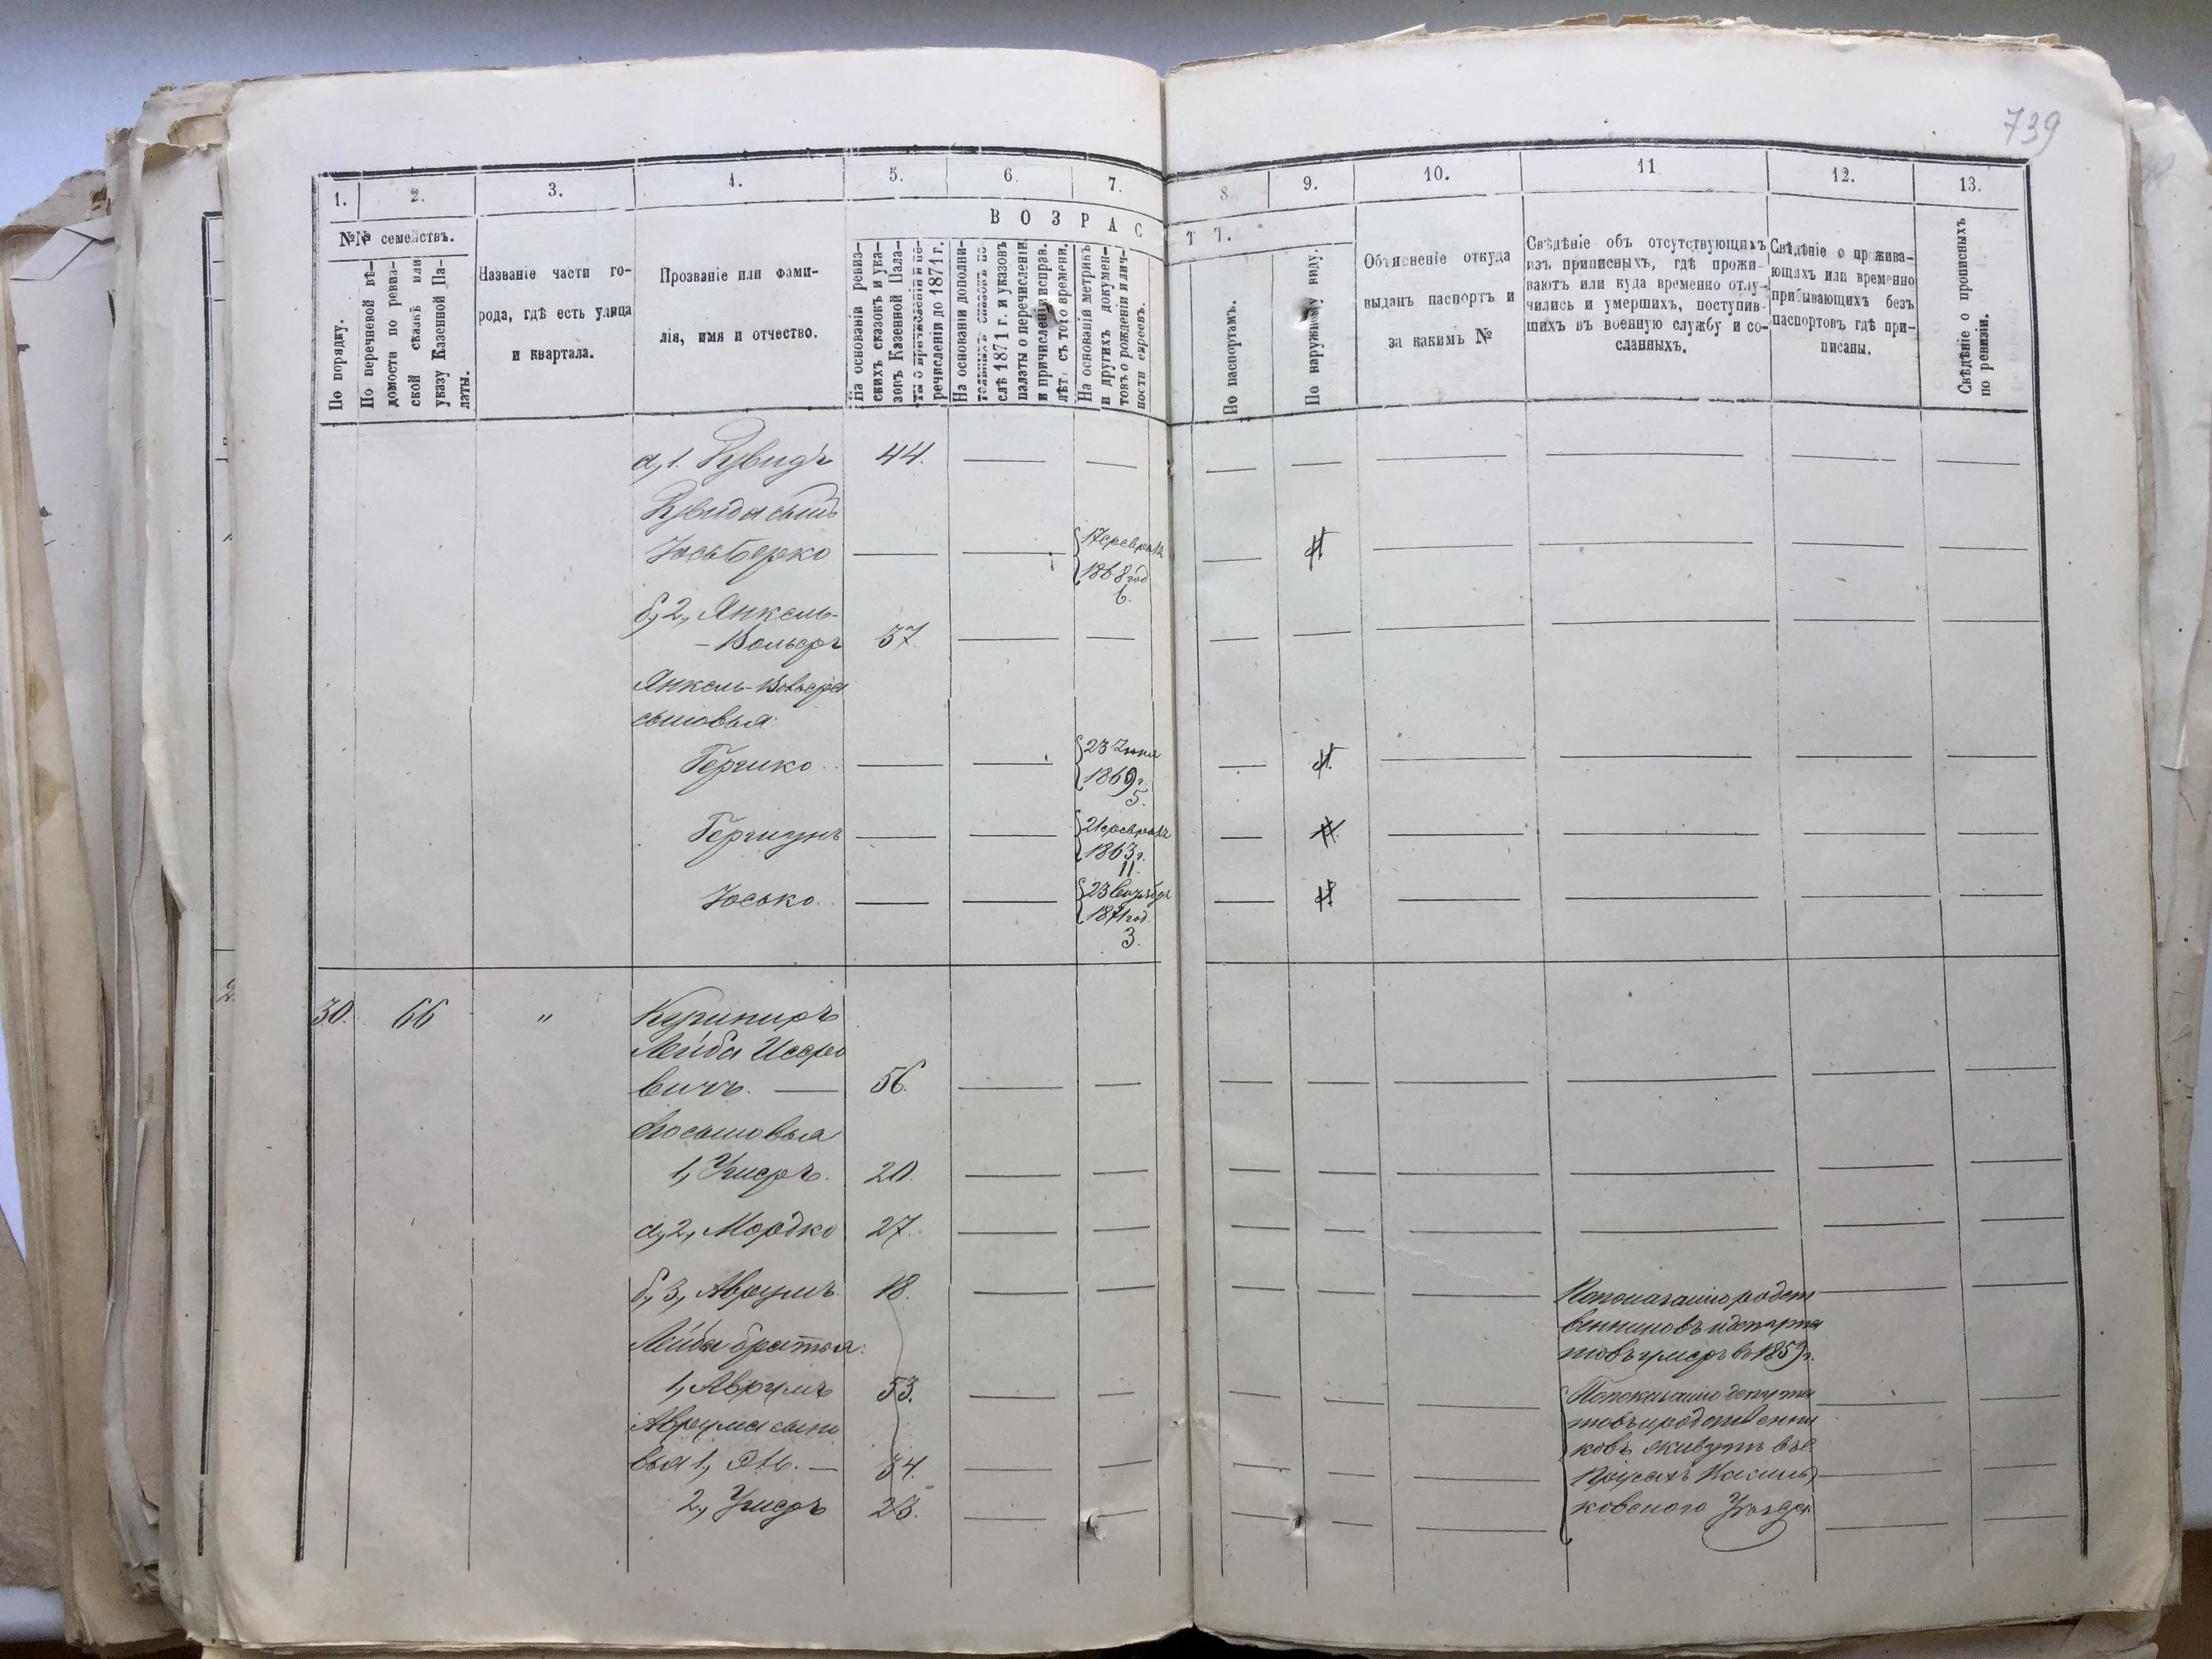 739
1.
2.
3.
4.
5.
6.
7.
8.
9.
10.
11
12.
13.
№№ семействъ.
По порядку.
По перечневой вѣ-
домости по ревиз-
ской сказкѣ или
указу Казенной Па-
латы.
Названіе части го-
рода, гдѣ есть улица
и квартала.
Прозваніе или фами-
лія, имя и отчество.
ВОЗРАС
ТЪ.
На основаніи ревиз-
скихъ сказокъ и ука-
зовъ Казенной Пала-
ты о причисленіи и пе-
речисленіи до 1871 г.
На основаніи дополни-
тельныхъ сказокъ по-
слѣ 1871 г. и указовъ
палаты о перечисленіи
и причисленіи исправ.
лѣт. съ того времени.
На основаніи метрикъ
и другихъ докумен-
товъ о рожденіи и лич-
ности евреевъ.
По паспортамъ.
По наружному виду.
Объясненіе откуда
выданъ паспортъ и
за какимъ №
Свѣдѣніе объ отсутствующихъ
изъ приписныхъ, гдѣ прожи-
ваютъ или куда временно отлу-
чились и умершихъ, поступив-
шихъ въ военную службу и со-
сланныхъ.
Свѣдѣніе о прожива-
ющихъ или временно
прибывающихъ безъ
паспортовъ, гдѣ при-
писаны.
Свѣдѣніе о прописныхъ
по ревизіи.
а, 1. Рувидъ 44.
Рувида сынъ
Юсь Берко 17 февраля
1868 год
6.
б, 2, Янкель-
- Вольфъ 37.
Янкель-Вольфа
сыновья:
Гершко 23 Іюня
1869 г.
5.
Гершунъ 21 февраля
1863 г.
11.
Юсько 23
1871 год
3.
30. 66 "
Кушниръ
Лейба
вичъ. 56.
Его сыновья
1, Ушеръ. 20.
а, 2, Мордко 27.
б, 3, Аврумъ 18. По показанію родст
венниковъ и депута
товъ умеръ въ 1859 г.
Лейбы братья:
1, Аврумъ 53. По показанію депута
товъ и родственни
ковъ живутъ въ с.
Аврума сыно
вья 1, Эль. 34.
2, Ушеръ 23. ковского Уѣзда.